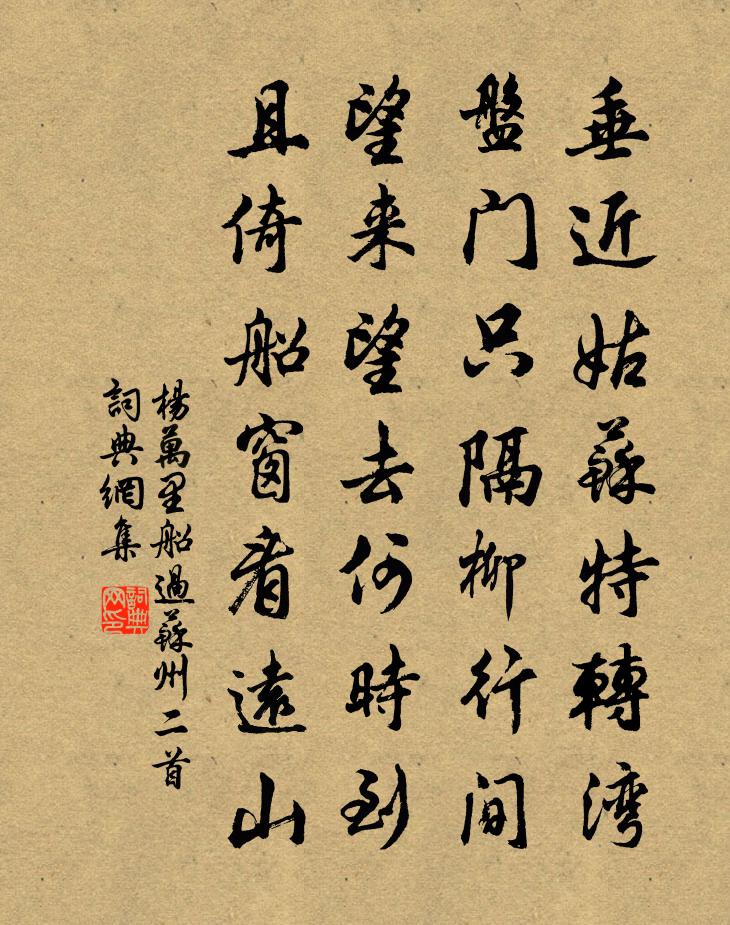 垂近姑蘇特轉湾
盤门只隔柳行间
望来望去何時到
且倚船窗看遠山
楊萬里船過蘇州二首
詞典網集
詞典网印